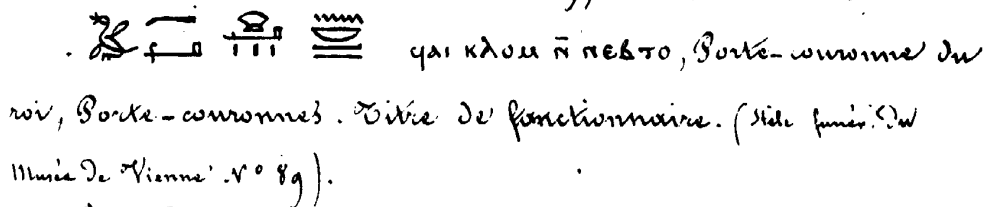 . ϥαι κλομ ⲛ̄ ⲛⲉⲃⲧⲟ, Porte-couronne du
roi, Porte-couronnes. Titre de fonctionnaire. (Stèle funér. du
Musée de Vienne N° 89).